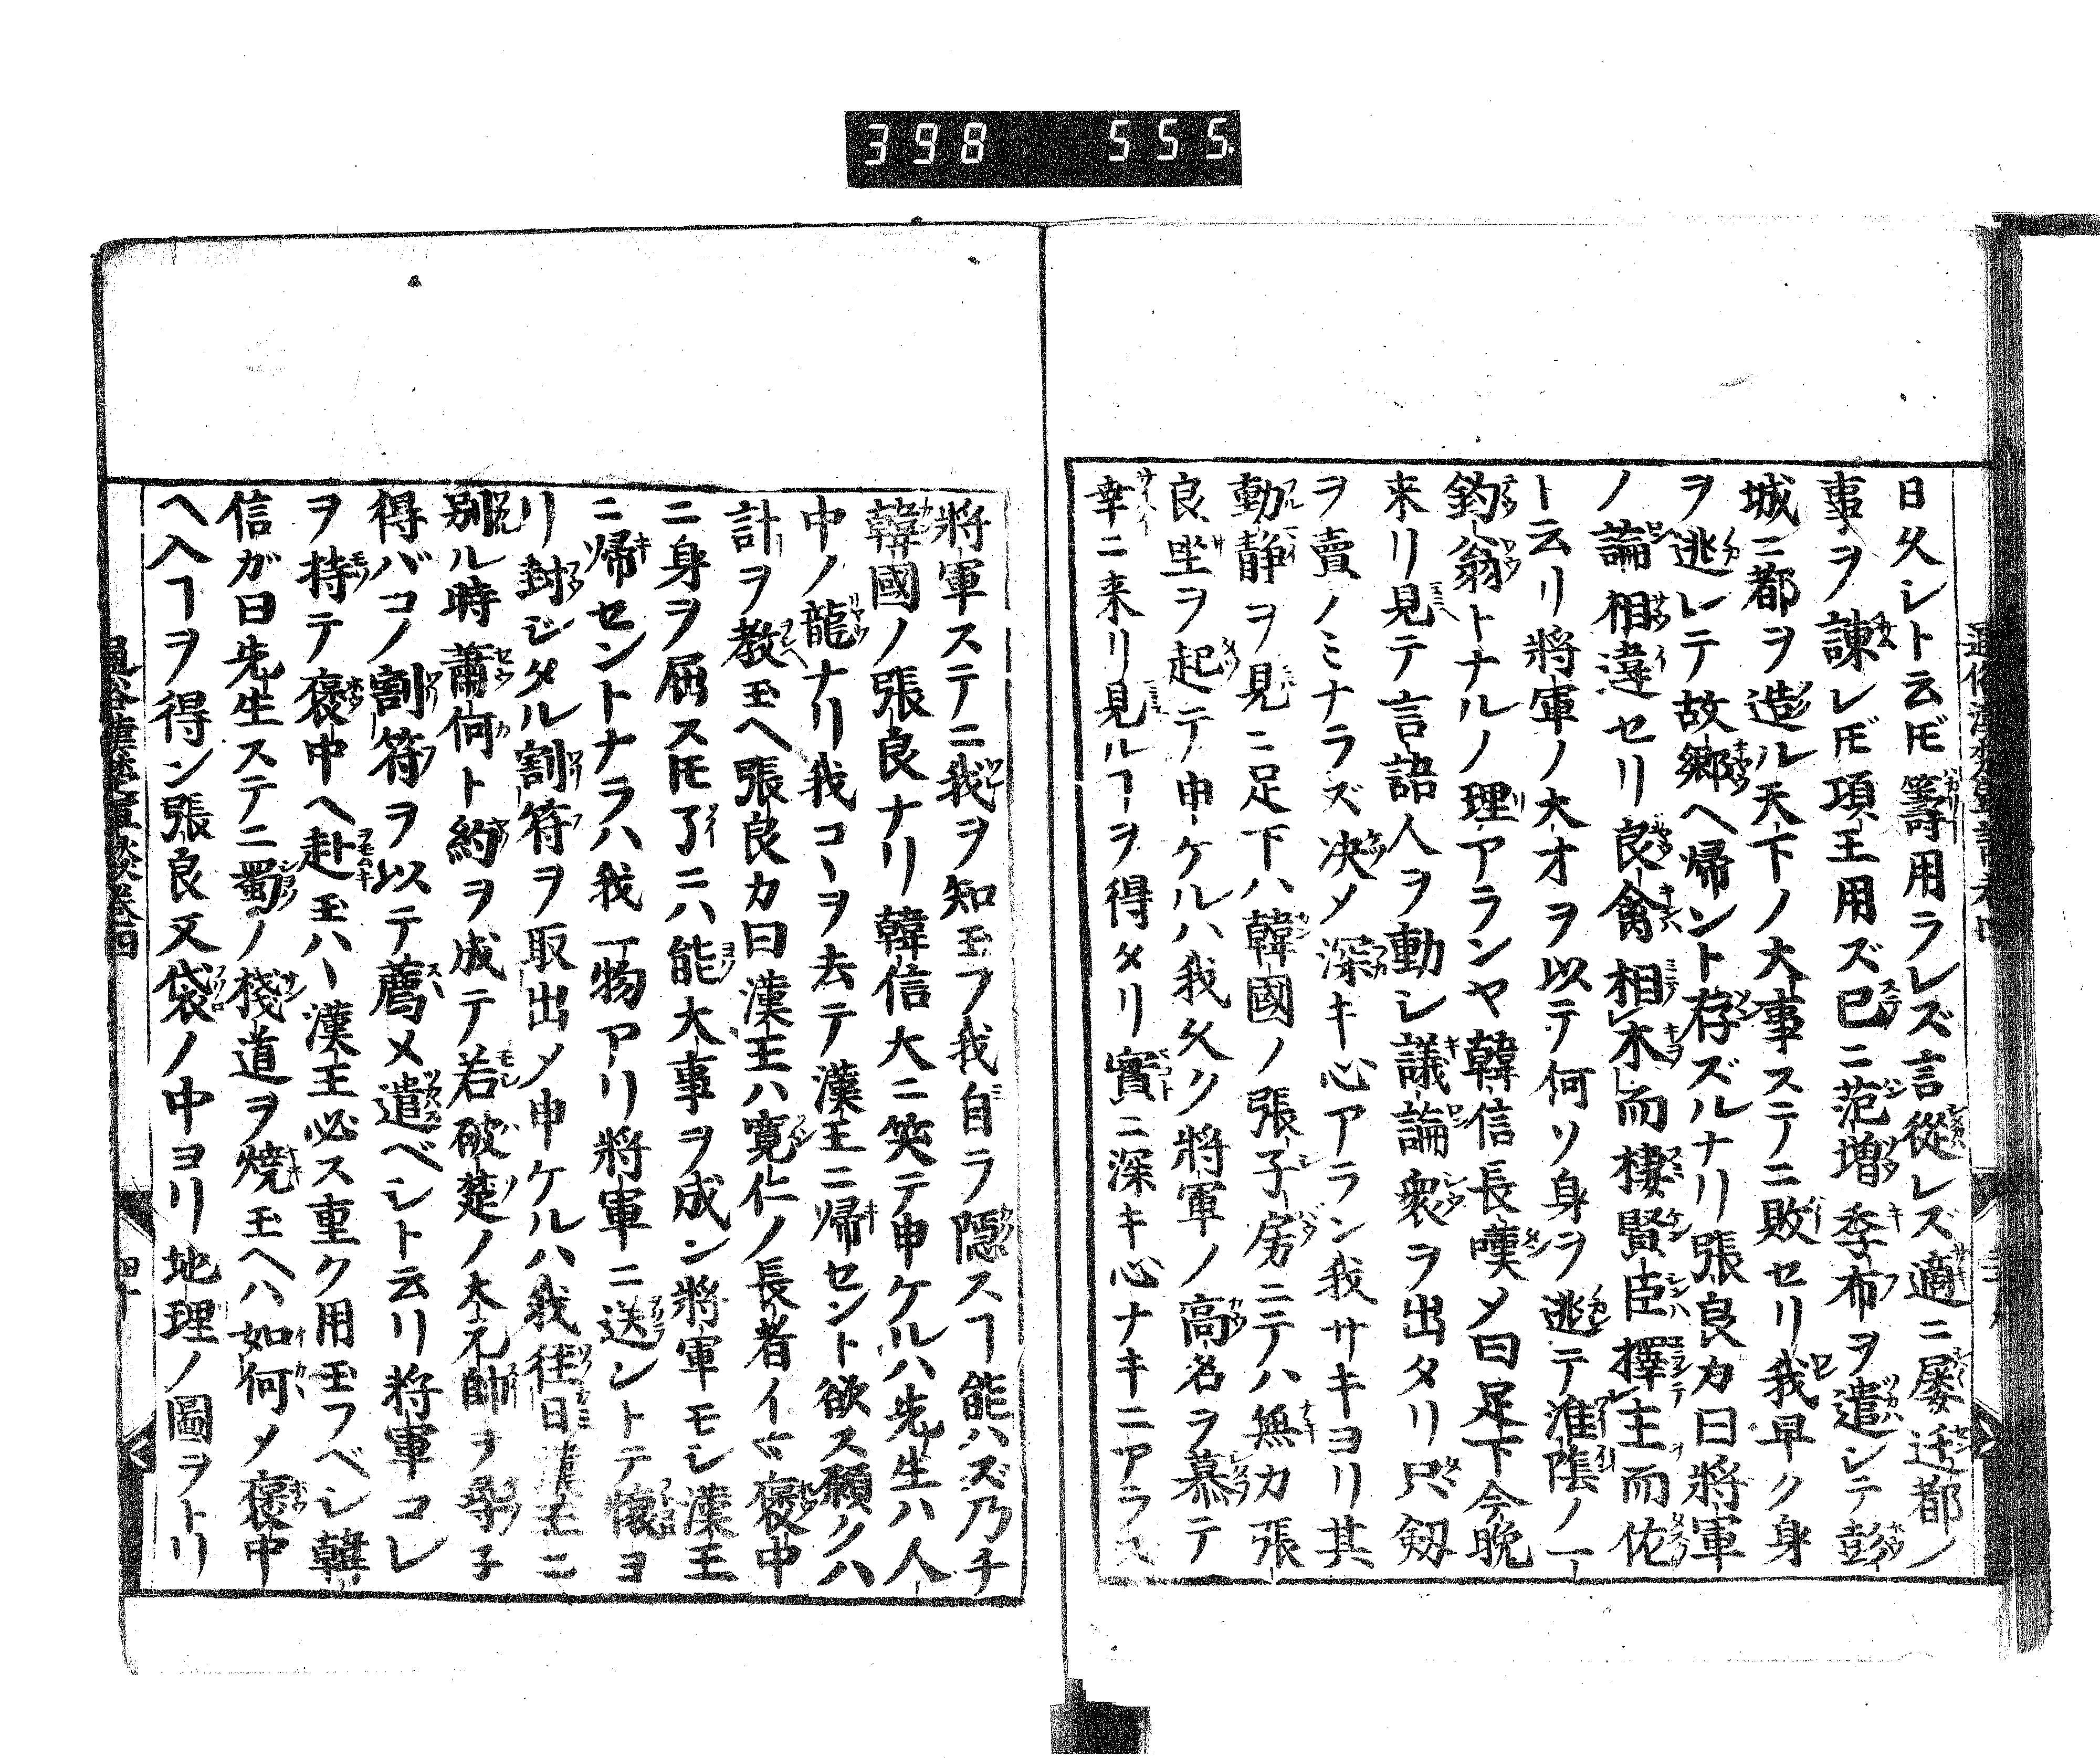 398 555
日久シト云𪜈籌用ラレズ言從レズ適ニ屡迁都ノ
事ヲ諌レ𪜈項王用ズ已ニ范増季布ヲ遣シテ彭
城ニ都ヲ造ル天下ノ大事ステニ敗セリ我早ク身
ヲ逃レテ故郷ヘ帰ント存ズルナリ張良カ曰將軍
ノ論相違セリ良禽相木而棲賢臣擇主而佐
ト云リ將軍ノ大才ヲ以テ何ソ身ヲ逃テ淮陰ノ一
釣翁トナルノ理アランヤ韓信長嘆メ曰足下今晩
来リ見テ言語人ヲ動シ議論衆ヲ出タリ只劔
ヲ賣ノミナラズ决メ深キ心アラン我サキヨリ其
動静ヲ見ニ足下ハ韓國ノ張子房ニテハ無カ張
良坐ヲ起テ申ケルハ我久ク將軍ノ高名ヲ慕テ
幸ニ来リ見ルヿヲ得タリ實ニ深キ心ナキニアラス
將軍ステニ我ヲ知玉フ我自ラ隠スヿ能ハズ乃チ
韓國ノ張良ナリ韓信大ニ笑テ申ケルハ先生ハ人
中ノ龍ナリ我コヽヲ去テ漢王ニ帰セント欲ス願クハ
計ヲ教玉ヘ張良カ曰漢王ハ寛仁ノ長者イマ褒中
ニ身ヲ屈ス𪜈了ニハ能大事ヲ成ン將軍モシ漢王
ニ帰セントナラハ我一物アリ將軍ニ送ントテ懐ヨ
リ封ジタル割符ヲ取出メ申ケルハ我往日漢王ニ
別ル時蕭何ト約ヲ成テ若破楚ノ大元帥ヲ尋子
得バコノ割符ヲ以テ薦メ遣ベシト云リ將軍コレ
ヲ持テ褒中ヘ赴玉ハヽ漢王必ス重ク用玉フベシ韓
信ガ曰先生ステニ蜀ノ棧道ヲ焼玉ヘハ如何メ褒中
ヘ入ヿヲ得ン張良又袋ノ中ヨリ地理ノ圖ヲトリ